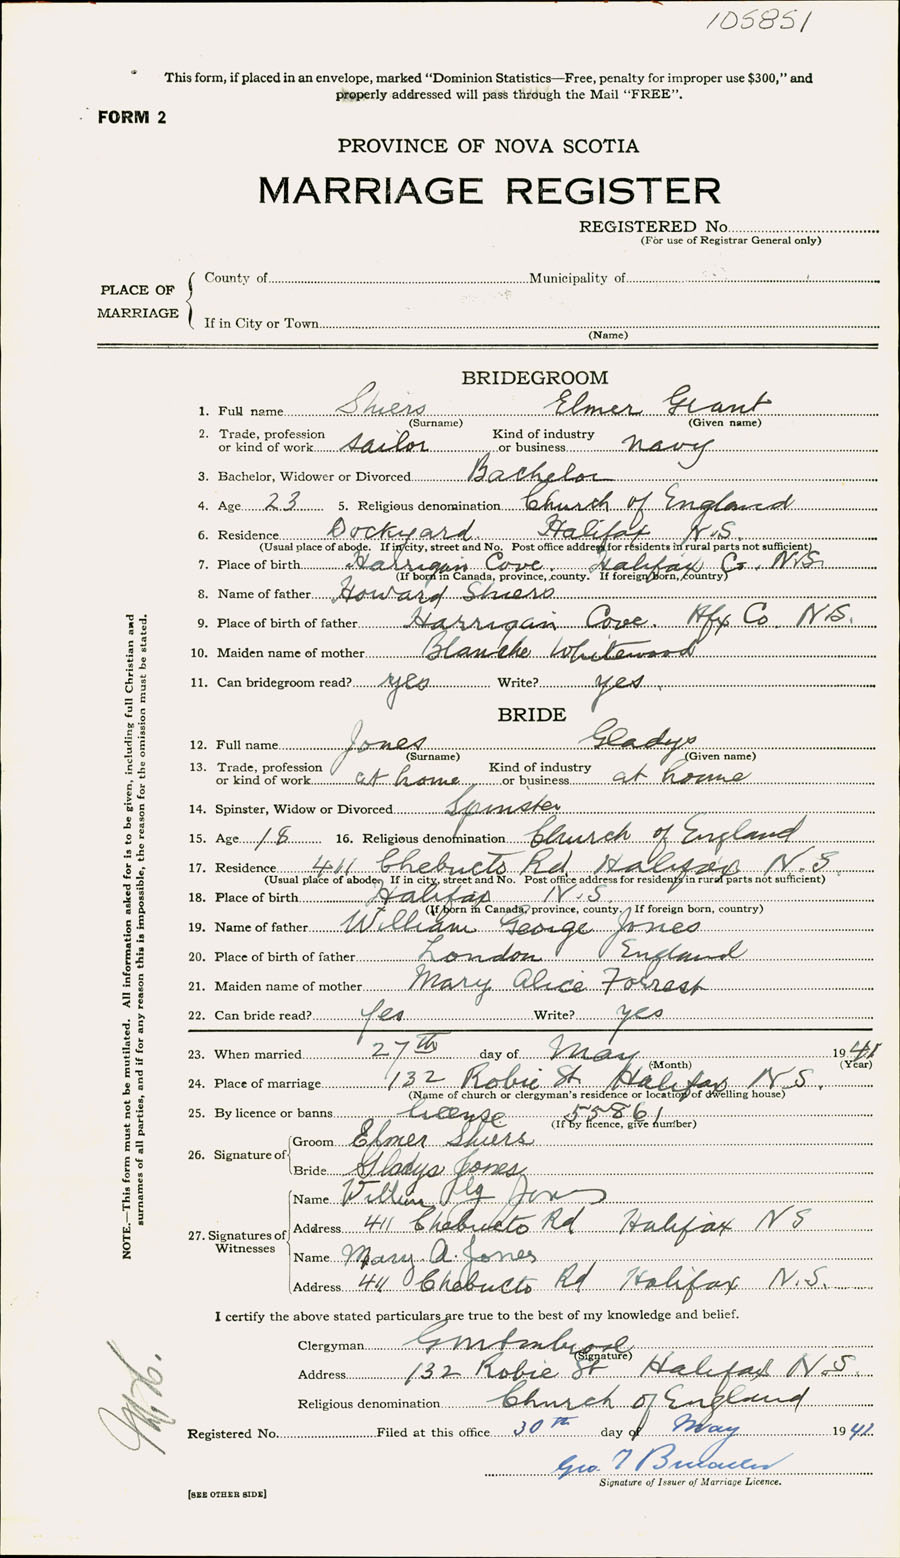 105851
This form, if placed in an envelope, marked “Dominion Statistics—Free, penalty for improper use $300,” and
properly addressed will pass through the Mail “FREE”.
FORM 2
PROVINCE OF NOVA SCOTIA
MARRIAGE REGISTER
REGISTERED No.
(For use of Registrar General only)
PLACE OF MARRIAGE
County of Municipality of
If in City or Town
(Name)
BRIDEGROOM
1. Full name Shiers Elmer Grant
(Surname) (Given name)
2. Trade, profession or kind of work sailor Kind of industry or business navy
3. Bachelor, Widower or Divorced Bachelor
4. Age 23 5. Religious denomination Church of England
6. Residence Dockyard Halifax N.S.
(Usual place of abode. If in city, street and No. Post office address for residents in rural parts not sufficient)
7. Place of birth Harrigan Cove. Halifax Co. N.S.
(If born in Canada, province, county. If foreign born, country)
8. Name of father Howard Shiers
9. Place of birth of father Harrigan Cove. Hfx Co. N.S.
10. Maiden name of mother Blanche Whitewood
11. Can bridegroom read? yes Write? yes.
BRIDE
12. Full name Jones Gladys
(Surname) (Given name)
13. Trade, profession or kind of work at home Kind of industry or business at home
14. Spinster, Widow or Divorced Spinster
15. Age 18 16. Religious denomination Church of England
17. Residence 411 Chebucto Rd Halifax N.S.
(Usual place of abode. If in city, street and No. Post office address for residents in rural parts not sufficient)
18. Place of birth Halifax N.S.
(If born in Canada, province, county. If foreign born, country)
19. Name of father William George Jones
20. Place of birth of father London England
21. Maiden name of mother Mary Alice Forrest
22. Can bride read? yes Write? yes
23. When married 27th day of May 1941
(Month) (Year)
24. Place of marriage 132 Robie St Halifax N.S.
(Name of church or clergyman's residence or location of dwelling house)
25. By licence or banns license 55861
(If by licence, give number)
26. Signature of
Groom Elmer Shiers
Bride Gladys Jones
27. Signatures of Witnesses
Name Jones
Address 411 Chebucto Rd Halifax NS
Name Mary A. Jones
Address 411 Chebucto Rd Halifax N.S.
I certify the above stated particulars are true to the best of my knowledge and belief.
Clergyman
(Signature)
Address 132 Robie St Halifax N.S.
Religious denomination Church of England
Registered No. Filed at this office 30th day of May 1941
Geo. T
Signature of Issuer of Marriage Licence.
[SEE OTHER SIDE]
NOTE.—This form must not be mutilated. All information asked for is to be given, including full Christian and
surnames of all parties, and if for any reason this is impossible, the reason for the omission must be stated.